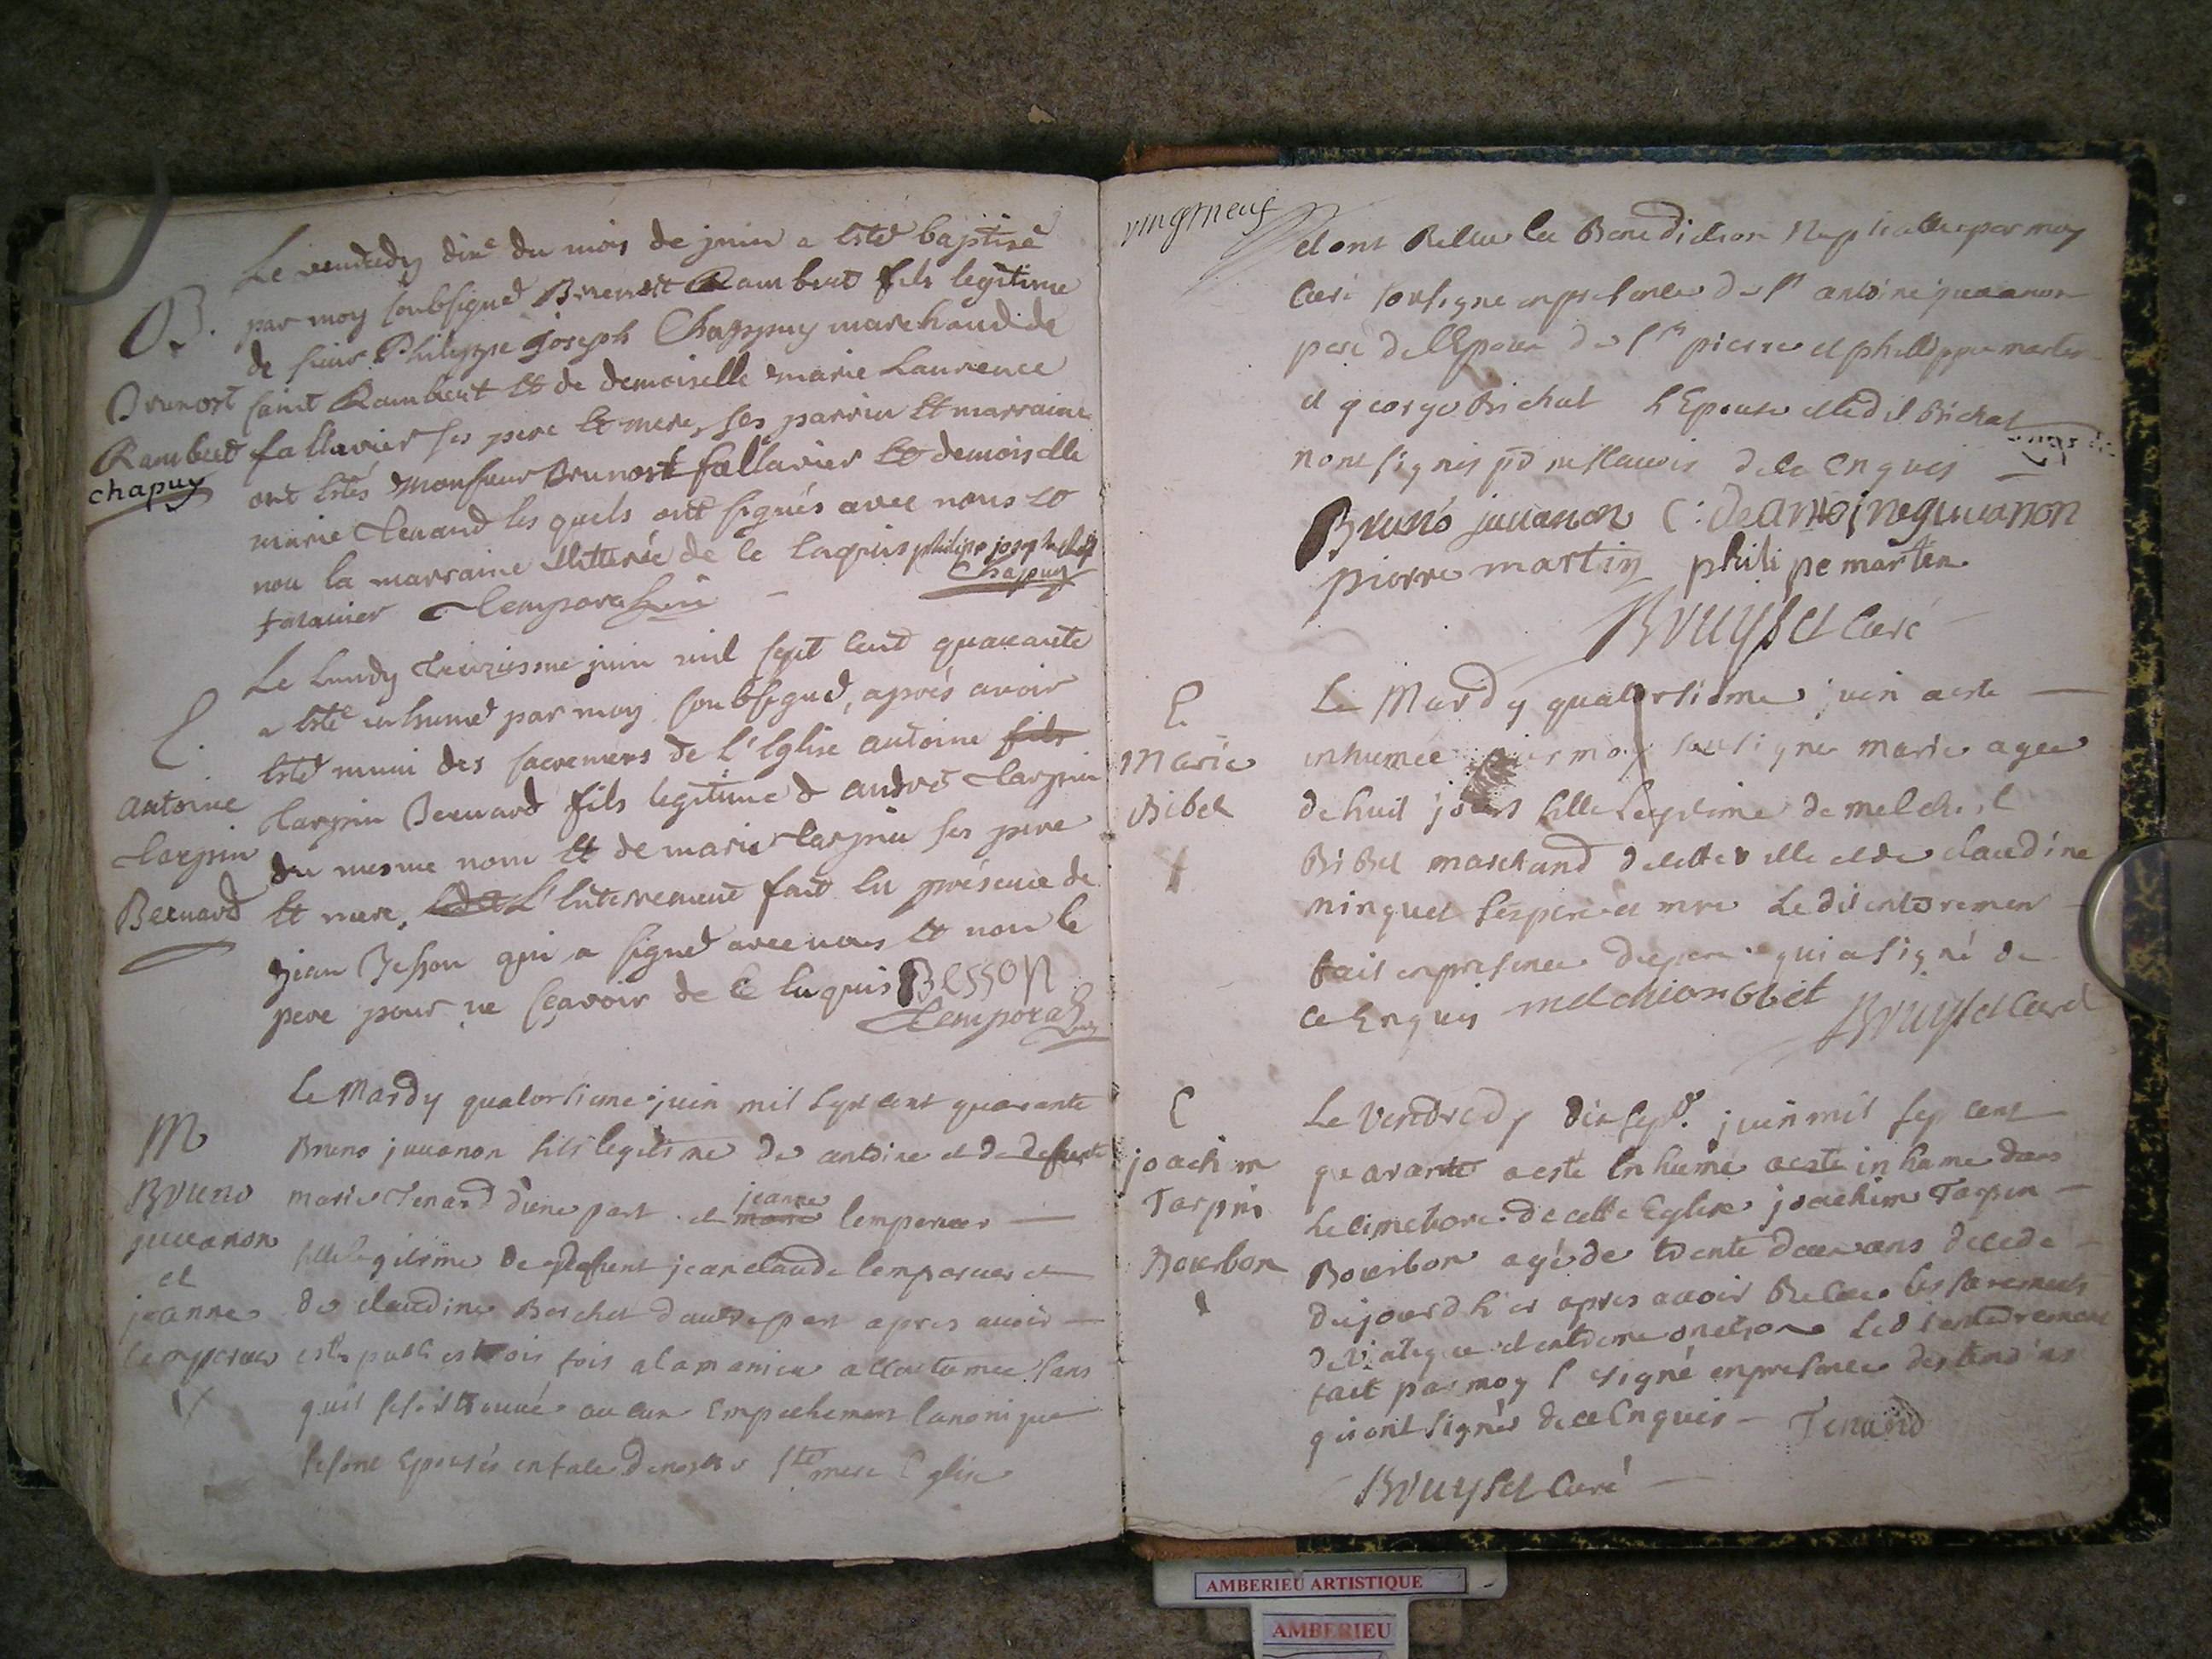 Le vendredy dixe du mois de juin a esté baptisé
B. par moy soubsigné Brunost Rambert fils legitime
de sieur Philippe Joseph Chappuy marchand de
Brunost saint Rambert et de demoiselle marie Laurence
Rambert fallavier ses pere et mere, ses parrin et marraine
chapuy
ont estés Monsieur Brunost fallavier et demoiselle
marie Tenand les quels ont signés avec nous et
non la marraine illitterée de ce enquis philipe joseph
Chapuy
falavier Temporal
Le Lundy treiziesme juin mil sept cent quarante
E. a esté inhumé par moy soubsigné, aprés avoir
esté muni des sacremens de l'Eglise antoine fils
antoine Tarpin Bernard fils legitime d andré Tarpin
Tarpin du mesme nom et de marie Tarpin ses pere
Bernard et mere, l'enterrement fait en présence de
jean Besson qui a signé avec nous et non le
pere pour ne sçavoir de ce enquis Besson
Temporal
Le Mardy quatorsieme juin mil sept cent quarante
M
Bruno juvanon fils legitime de antoine et de defunte
Bruno marie Tenard d'une part et marie jeanne lempereur
juvanon fille legitime de defunt jean claude lempereur et
et
jeanne de claudine Berchet dautre part apres avoir
lempereur esté publiés trois fois a la maniere accoutumee sans
quil se soit trouvé aucun Empechement canonique
se sont Epousés en face de nostre Ste mere Eglise
vingtneuf
et ont Recue la Benediction Nuptialle par moy
Curé sousigné en presence de sr antoine juvanon
pere de lEpoux de srs pierre et philippe martin
et george Brichat LEpouse et ledit Brichat
nont signés pr ne scavoir de ce Enquis
Bruno juvanon C: de antoine guuanon
pierre martin philipe marten
Bruyset Curé
E. Le Mardy quatorsieme juin a esté
Marie inhumée par moy sousigné marie agee
Bibet de huit jours fille Legitime de melchi
Bibet marchand de cette ville et de claudine
ninguet ses pere et mere Le dit enterremen
fait en presence du pere qui a signé de
ce Enquis melchior bbet Bruyset Curé
E Le Vendredy dix sept. juin mil sep cent
joachim quarante a esté Inhumé a esté inhumé dans
Tarpin Le cimetiere de cette Eglise joachim Tarpin
Bourbon Bourbon agé de trente deux ans decede
aujourdhier apres avoir Recue les saremens
de viatique et extreme onction Le dit enterrement
fait par moy s signé en presence des
qui ont signés de ce Enquis Tenard
Bruyset Curé
AMBERIEU ARTISTIQUE
AMBERIEU